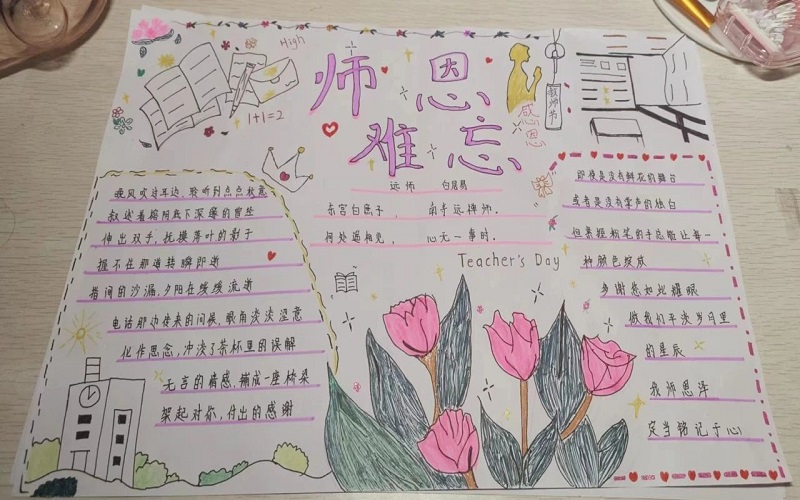 High
1+1=2
师恩
难忘
感恩
教师节
晚风吹过耳边,聆听到点点秋意
叙述着梧桐底下深邃的曾经
伸出双手,抚摸落叶的影子
握不在那道转瞬即逝
指间的沙漏,夕阳在缓缓流逝
电话那边传来的问候,眼角淡淡湿意
化作思念,冲淡了茶杯里的误解
无言的情感,铺成一座桥梁
架起对你,付出的感谢
远师 白居易
东宫白庶子, 南寺远禅师.
何处遥相见, 心无一事时.
Teacher's Day
即使是没有鲜花的舞台
或者是没有掌声的独白
但紧握粉笔的手总能让每一
种颜色绽放
多谢您如此耀眼
做我们平淡岁月里
的星辰
我师恩泽
定当铭记于心